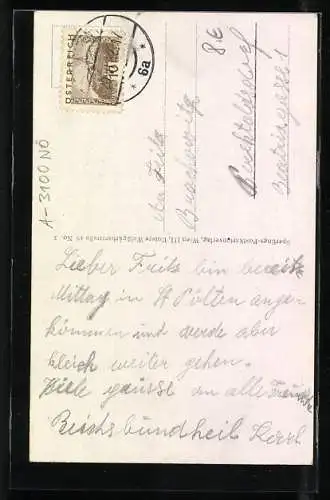 ÖSTERREICH
10
* 6a *
A-3100 NÖ
8€
Fritz
Perchtoldsdorf
Beatrixgasse 1
Sperlings-Postkartenverlag, Wien III, Untere Weißgärberstraße 45 No. 3
Lieber Fritz bin bereits
Mittag in St Pölten ange-
kommen und werde aber
gleich weiter gehen.
Viele grüsse an alle Freunde
Reichsbundheil Karl